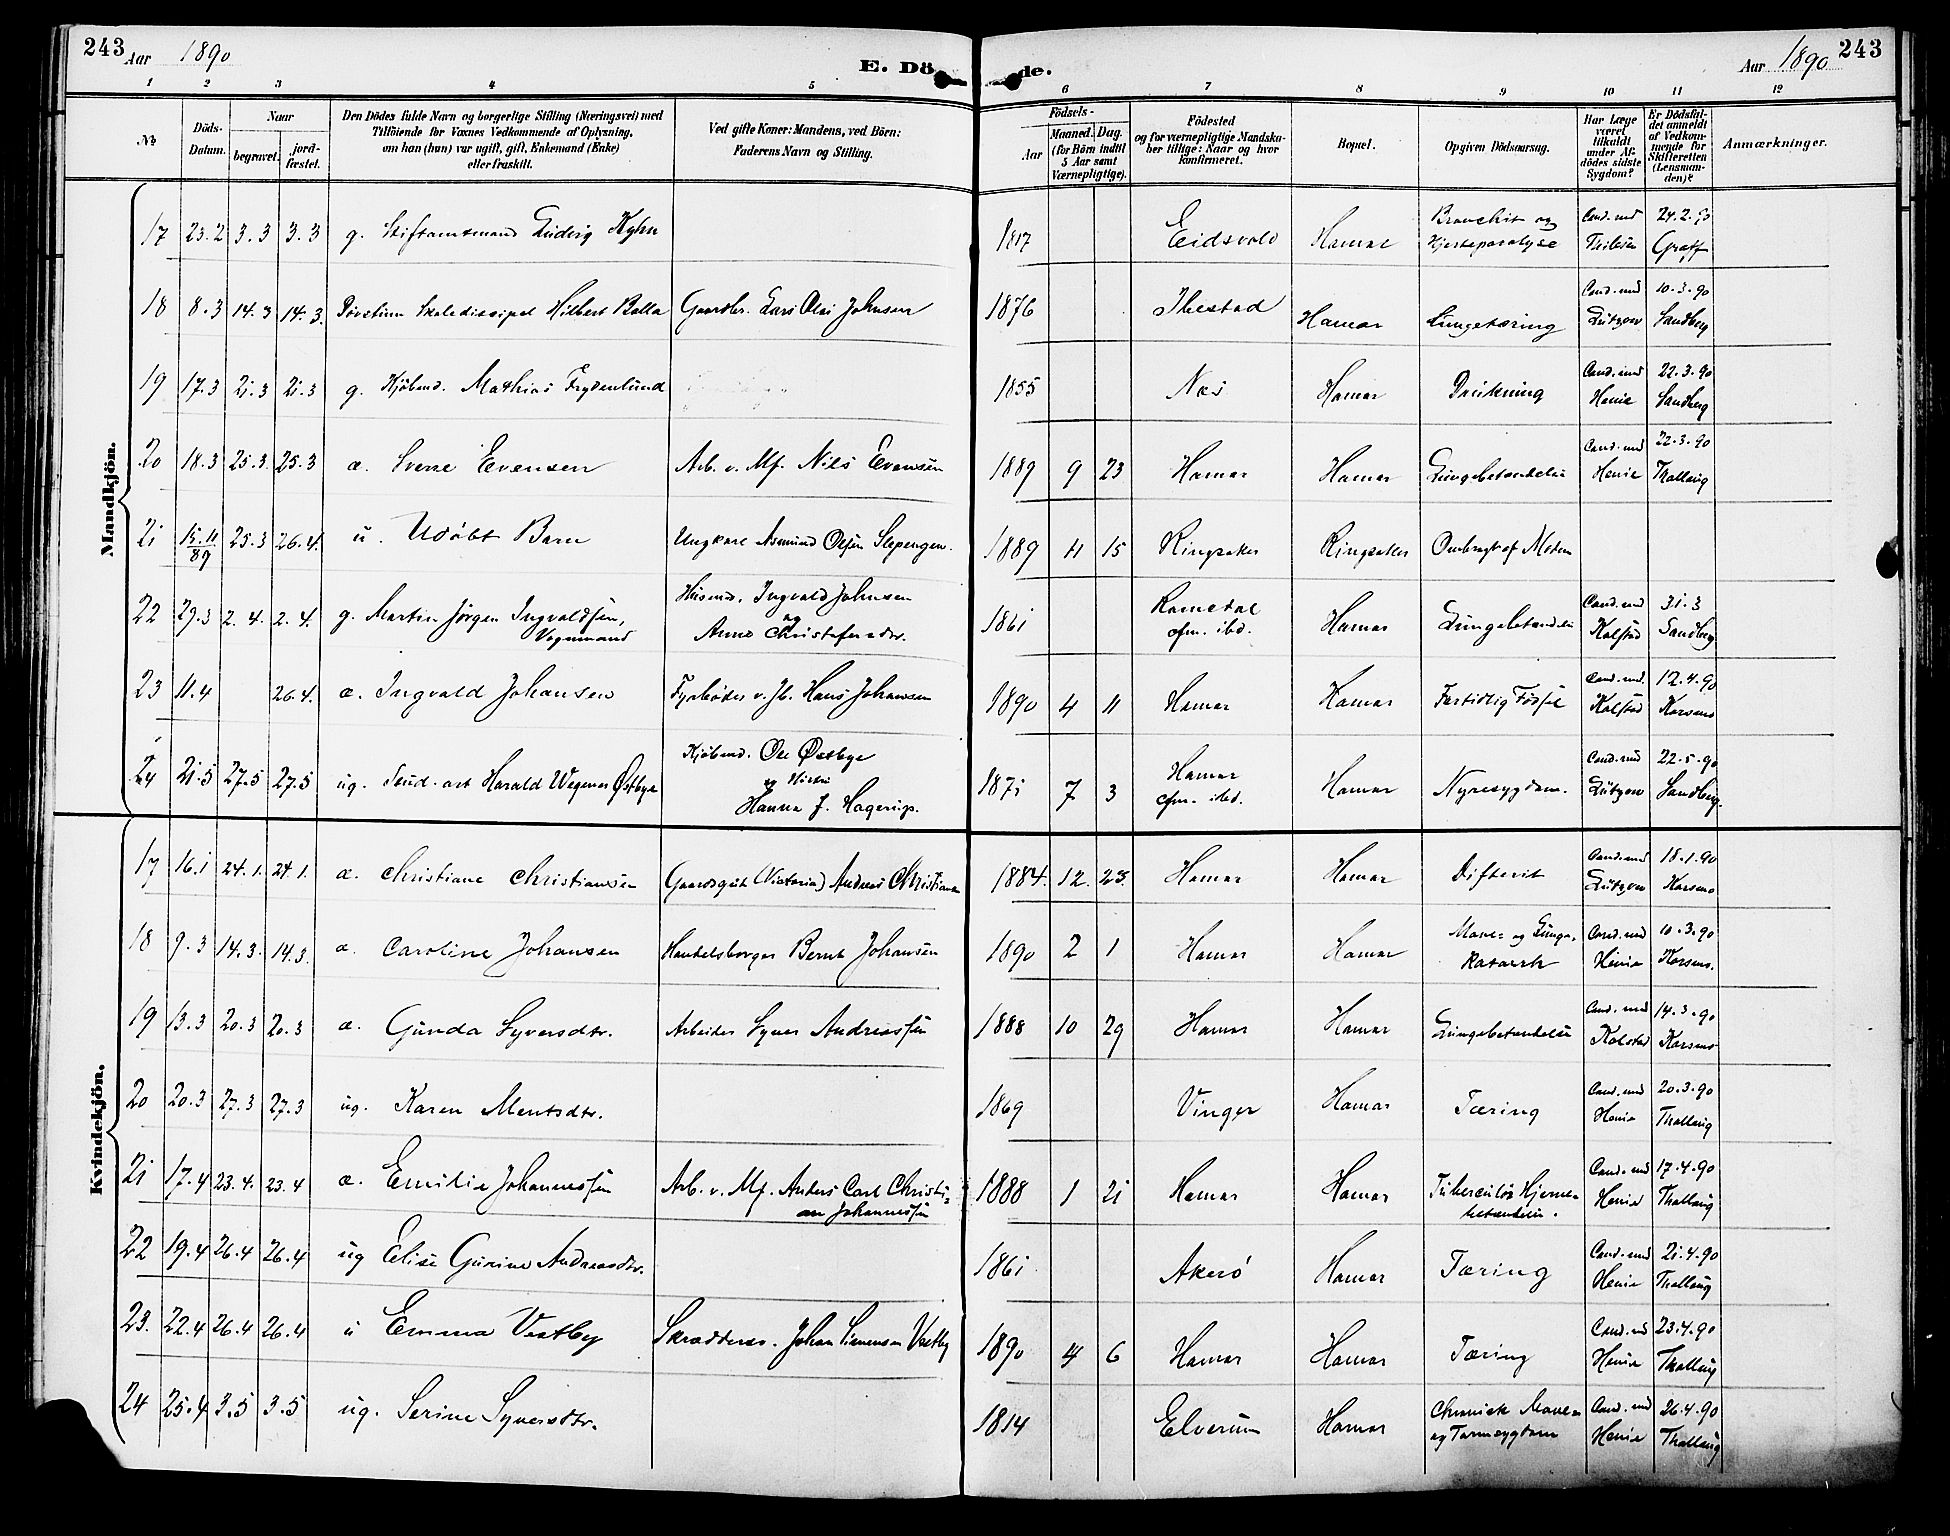 243 Aar 1890
E. Dö de.
Aar 1890 243
1 2 3 4 5 6 7 8 9 10 11 12
No. Döds-Datum. Naar begravet. jordfæstet. Den Dödes fulde Navn og borgerlige Stilling (Næringsvei) med Tilföiende for Voxnes Vedkommende af Oplysning, om han (hun) var ugift, gift, Enkemand (Enke) eller fraskilt. Ved gifte Koner: Mandens, ved Börn: Faderens Navn og Stilling. Födsels- Aar Maaned. Dag. (for Börn indtil 5 Aar samt Værnepligtige). Födested og for værnepligtige Mandskaber tillige: Naar og hvor konfirmeret. Bopæl. Opgiven Dödsaarsag. Har Læge været tilkaldt under Afdödes sidste Sygdom? Er Dödsfaldet anmeldt af Vedkommende for Skifteretten (Lensmanden)? Anmærkninger.
Mandkjön.
17 23.2 3.3 3.3 g. Stiftamtmand Ludvig Kyhn 1817 Eidsvold Hamar Bronchit og Hjerteparalyse Cand. med 24.2.90 Graff
18 8.3 14.3 14.3. Skolediscipel Hilbert Balla Gaardbr. Lars Olai Johnsen 1876 Ibestad Hamar Lungetæring Cand. med Lützow 10.3.90 Sandberg
19 17.3 21.3 21.3 g. Kjöbmd. Mathias Frydenlund 1855 Næs Hamar Drukning Cand. med Henie 22.3.90 Sandberg
20 18.3 25.3. 25.3 æ. Sverre Evensen Arb. v. Mf. Nils Evensen 1889 9 23 Hamar Hamar Lungebetændelse Cand. med Henie 22.3.90 Thallaug
21 15.11/89 25.3 26.4. u. Udöbt Barn Ungkarl Asmund Olsen Slepengen. 1889 11 15 Ringsaker Ringsaker Ombragt af Moderen
22 29.3 2.4. 2.4. g. Martin Jörgen Ingvaldsen, Vognmand Husmd. Ingvald Johnsen og Anne Christofersdtr. 1861 Romedal cfm. ibd. Hamar Lungebetændelse Cand. med Kolstad 31.3 Sandberg
23 11.4 26.4. æ. Ingvald Johansen Fyrböder v. Jb. Hans Johansen 1890 4 11 Hamar Hamar Fortidlig Födsel Cand. med. Kolstad 12.4.90 Korsmo
24 21.5 27.5 27.5 ug. Stud. art Harald Wegener Østbye Kjöbmd. Ole Østbye og Hustru Hanna J. Hagerup. 1871 7 3 Hamar cfm. ibd. Hamar Nyresygdom. Cand. med Lützow 22.5.90 Sandberg.
Kvindekjön.
17 16.1 24.1. 24.1. æ. Christiane Christiansen Gaardsgut (Victoria) Andreas Christiansen 1884. 12. 23. Hamar Hamar Difterit Cand. med Lützow 18.1.90 Korsmo
18 9.3 14.3. 14.3. æ. Caroline Johansen Handelsborger Bernt Johansen 1890 2 1 Hamar Hamar Mave- og Lunge-Katarrh Cand. med Henie 10.3.90 Korsmo.
19 13.3 20.3 20.3 æ. Gunda Syversdtr. Arbeider Syver Andreassen 1888 10 29 Hamar Hamar Lungebetændelse Cand. med Kolstad 14.3.90 Korsmo
20 20.3 27.3 27.3 ug. Karen Mentsdtr. 1869 Vinger Hamar Tæring Cand. med Henie 20.3.90 Thallaug
21 17.4 23.4. 23.4 æ. Emilie Johannessen Arb. v. Mf. Anders Carl Christian Johannessen 1888 1 21 Hamar Hamar Tuberculös Hjernebetændelse. Cand. med Henie 17.4.90 Thallaug
22 19.4 26.4 26.4 ug Elise Gurine Andreasdtr. 1861 Akerö Hamar Tæring Cand. med Henie 21.4.90 Thallaug
23. 22.4 26.4 26.4 u Emma Vestby Skrædders. Johan Simensen Vestby 1890 4 6 Hamar Hamar Tæring Cand. med Henie 23.4.90 Thallaug
24 25.4 3.5 3.5 ug. Serine Syversdtr. 1814 Elverum Hamar Chronisk Mave- og Tarmsygdom Cand. med Henie 26.4.90 Thallaug